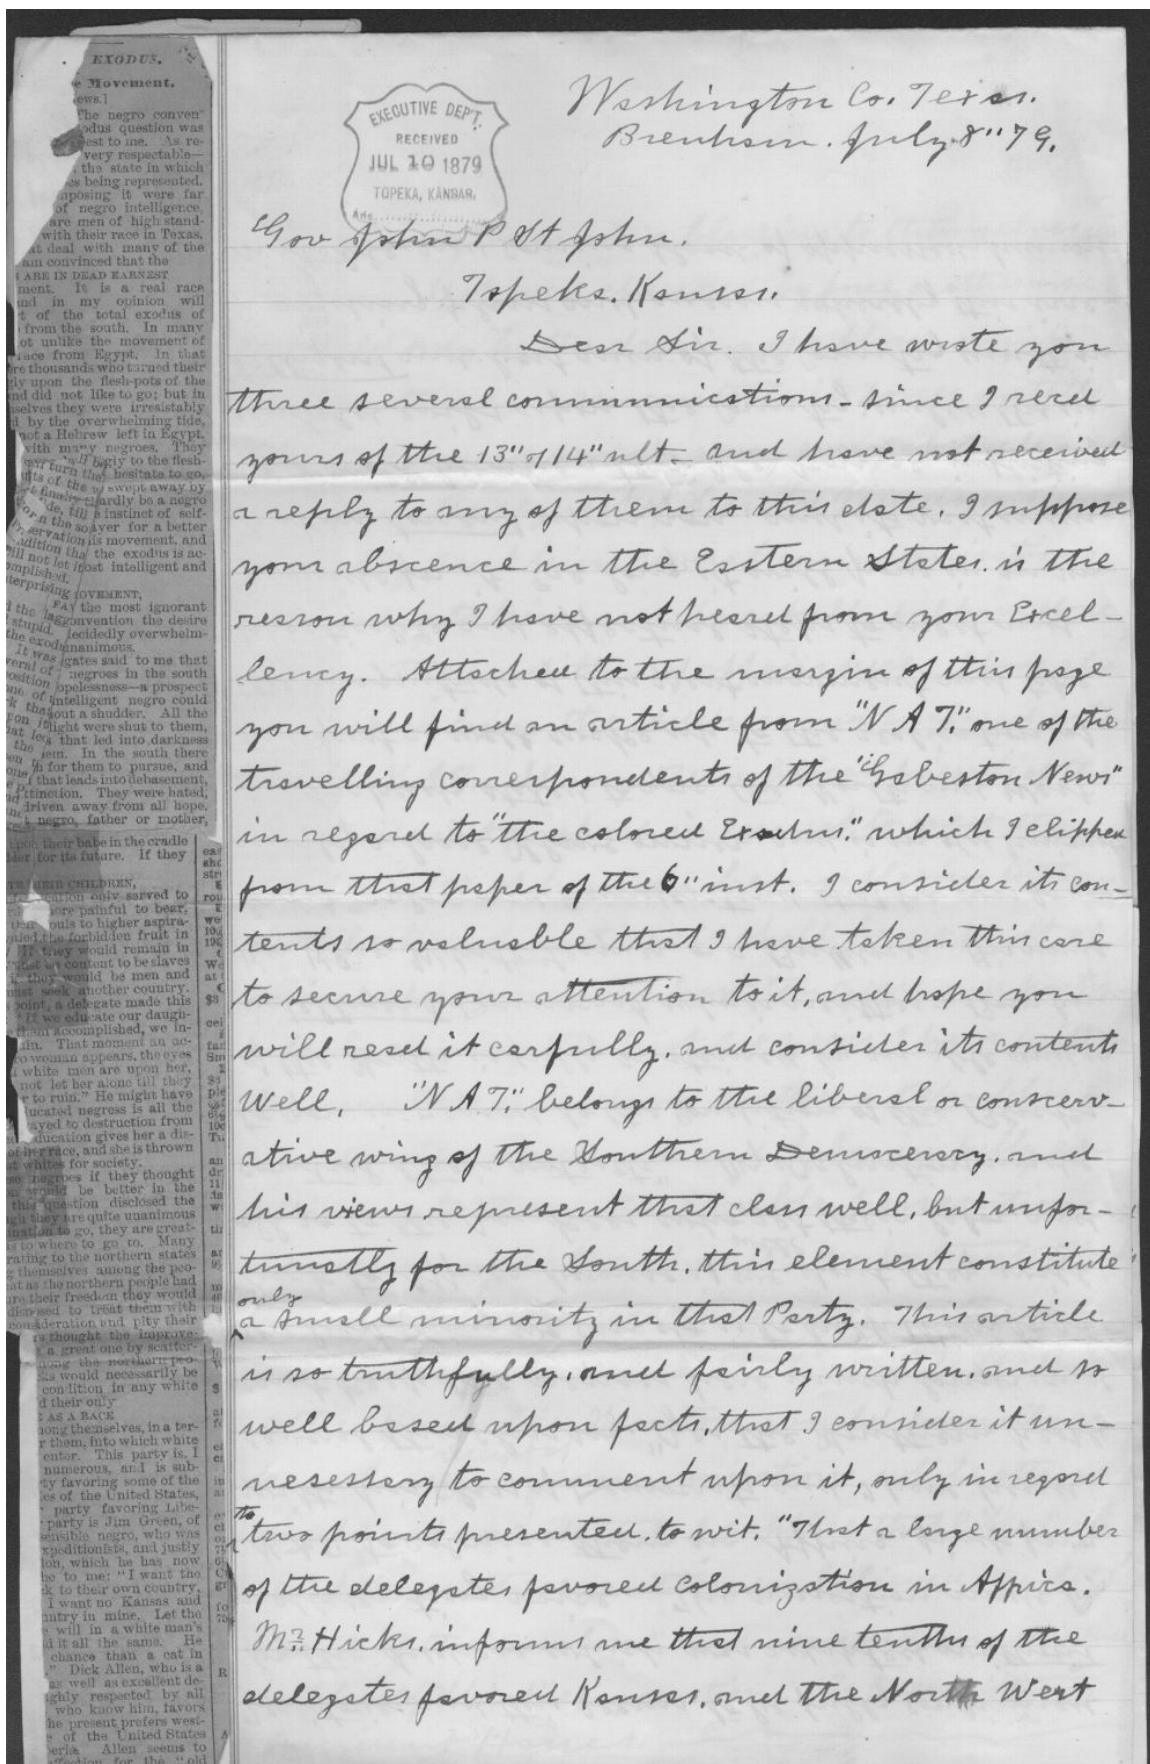 EXODUS.
e Movement.
ews.]
The negro conven-
odus question was
est to me. As re-
very respectable—
the state in which
s being represented.
mposing it were far
of negro intelligence,
are men of high stand-
with their race in Texas.
at deal with many of the
am convinced that the
ARE IN DEAD EARNEST
ment. It is a real race
nd in my opinion will
t of the total exodus of
from the south. In many
ot unlike the movement of
race from Egypt. In that
re thousands who turned their
ly upon the flesh-pots of the
nd did not like to go; but in
selves they were irresistably
d by the overwhelming tide,
not a Hebrew left in Egypt.
with many negroes. They
OVEMENT,
the most ignorant
onvention the desire
decidedly overwhelm-
unanimous.
gates said to me that
negroes in the south
opelessness—a prospect
intelligent negro could
out a shudder. All the
light were shut to them,
that led into darkness
em. In the south there
h for them to pursue, and
that leads into debasement,
tinction. They were hated,
driven away from all hope.
negro, father or mother,
upon their babe in the cradle
der for its future. If they
EIR CHILDREN,
cation only served to
ore painful to bear,
ouls to higher aspira-
nied the forbidden fruit in
If they would remain in
content to be slaves
if they would be men and
must seek another country.
point, a delegate made this
"If we educate our daugh-
them accomplished, we in-
uin. That moment an ac-
ro woman appears, the eyes
white men are upon her,
not let her alone till they
r to ruin." He might have
ducated negress is all the
ayed to destruction from
education gives her a dis-
of her race, and she is thrown
whites for society.
se negroes if they thought
would be better in the
this question disclosed the
gh they are quite unanimous
nation to go, they are great-
as to where to go to. Many
rating to the northern states
g themselves among the peo-
at as the northern people had
re their freedom they would
disposed to treat them with
consideration and pity their
s thought the improve-
a great one by scatter-
among the northern peo-
ks would necessarily be
condition in any white
d their only
AS A RACE
nong themselves, in a ter-
r them, into which white
enter. This party is, I
numerous, and is sub-
ty favoring some of the
es of the United States,
party favoring Libe-
party is Jim Green, of
sensible negro, who was
xpeditionists, and justly
ion, which he has now
he to me: "I want the
k to their own country,
I want no Kansas and
untry in mine. Let the
will in a white man's
d it all the same. He
chance than a cat in
" Dick Allen, who is a
as well as excellent de-
ghly respected by all
who know him, favors
he present prefers west-
of the United States
eria. Allen seems to
affection for the "old
EXECUTIVE DEP'T.
RECEIVED
JUL 10 1879
TOPEKA, KANSAS.
Ans
Washington Co. Texas.
Brenham. July 8" 79.
Gov John P St John.
Topeka. Kansas.
Dear Sir. I have wrote you
three several communications - since I recd
yours of the 13" & 14" ult - and have not received
a reply to any of them to this date. I suppose
your abscence in the Eastern States. is the
reason why I have not heard from your Excel-
lency. Attached to the margin of this page
you will find an article from "N A T." one of the
travelling correspondents of the "Galveston News"
in regard to "the colored Exodus." which I clipped
from that paper of the 6" inst. I consider its con-
tents so valuable that I have taken this care
to secure your attention to it, and hope you
will read it carfully. and consider its contents
well. "N A T." belongs to the liberal or conserv-
ative wing of the Southern Democracy. and
his views represent that class well, but unfor-
tunatly for the South. this element constitute
only
a small minority in that Party. This article
is so truthfully. and fairly written. and so
well based upon facts, that I consider it un-
nesessary to comment upon it, only in regard
to
two points presented. to wit. "That a large number
of the delegates favored colonization in Affrica.
Mr. Hicks. informs me that nine tenths of the
delegates favored Kansas. and the North West